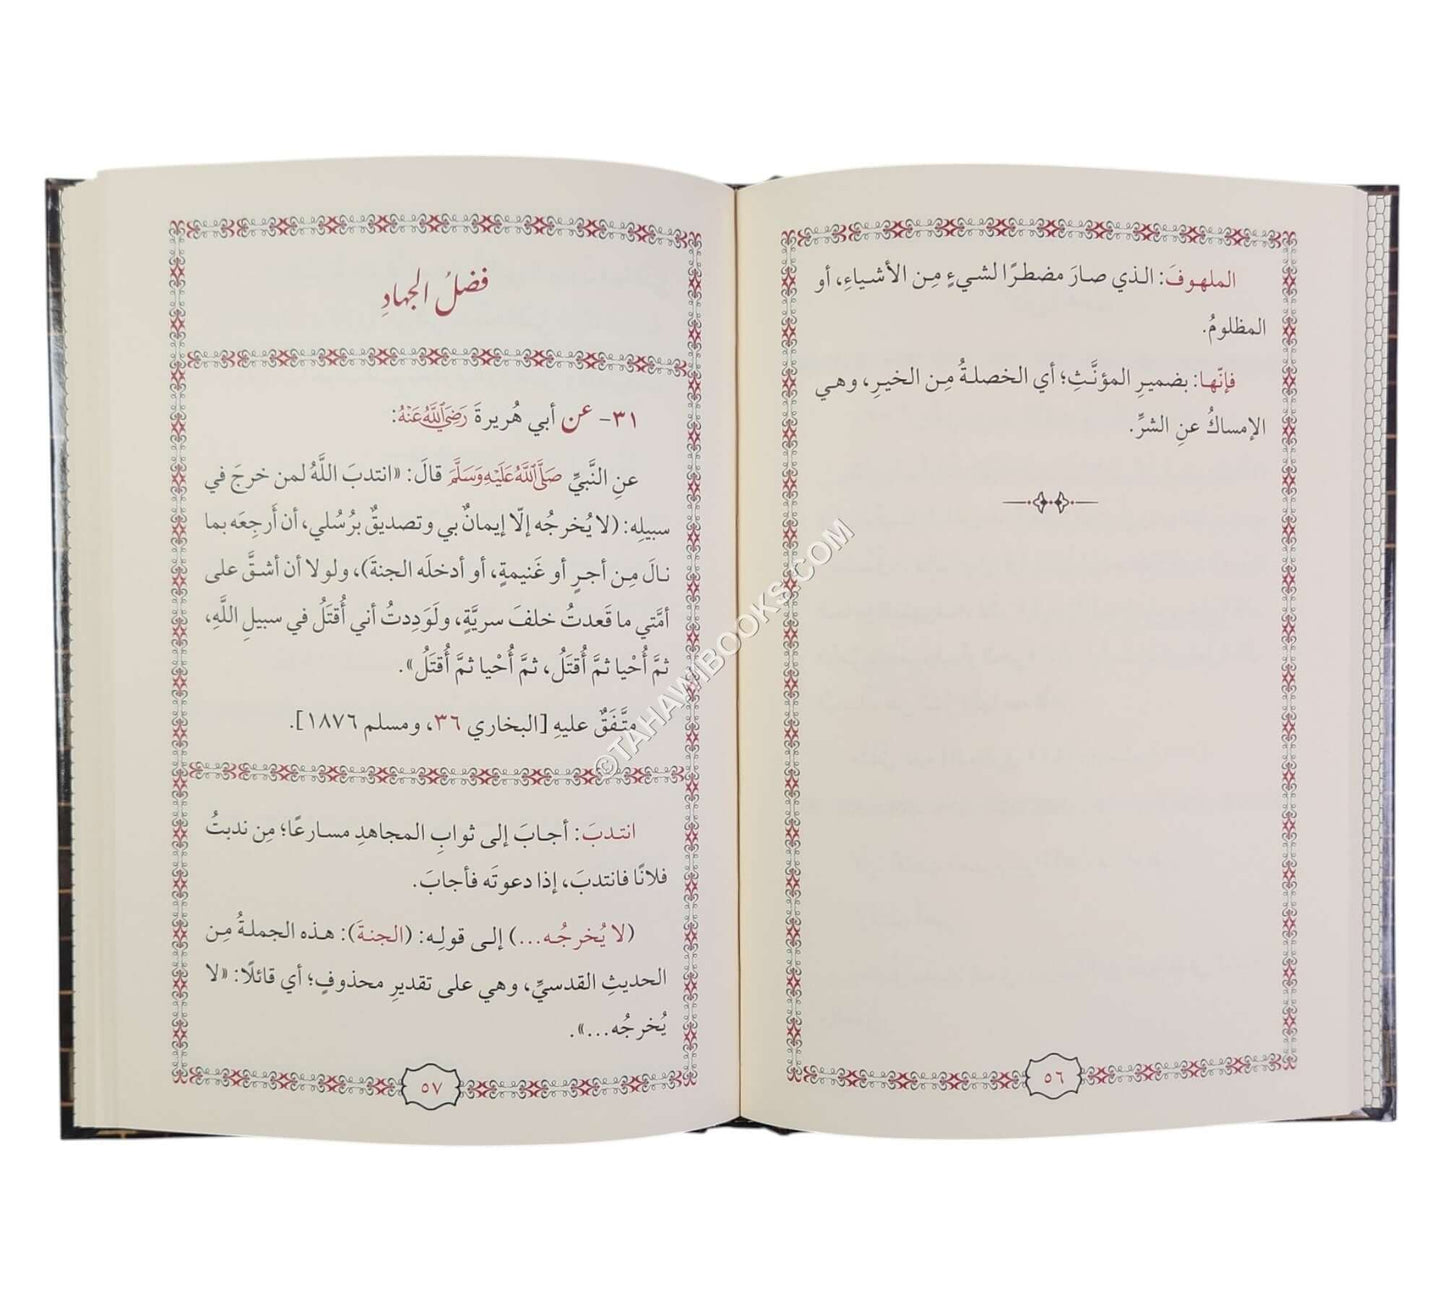 الملهوفَ: الذي صارَ مضطرًا لشيءٍ مِن الأشياءِ، أو
المظلومُ.
فإنّها: بضميرِ المؤنَّثِ؛ أي الخصلةُ مِن الخيرِ، وهي
الإمساكُ عنِ الشرِّ.
٥٦
فضلُ الجهادِ
٣١- عن أبي هُريرةَ رَضِيَ ٱللَّهُ عَنْهُ:
عنِ النَّبيِّ صَلَّى ٱللَّهُ عَلَيْهِ وَسَلَّمَ قالَ: «انتدبَ اللَّهُ لمن خرجَ في
سبيلِه: (لا يُخرجُه إلّا إيمانٌ بي وتصديقٌ برُسُلي، أن أَرجِعَه بما
نالَ مِن أجرٍ أو غَنيمةٍ، أو أدخلَه الجنةَ)، ولولا أن أشقَّ على
أمَّتي ما قَعدتُ خلفَ سريَّةٍ، ولَوَدِدتُ أني أُقتَلُ في سبيلِ اللَّهِ،
ثمَّ أُحْيا ثمَّ أُقتَلُ، ثمَّ أُحْيا ثمَّ أُقتَلُ».
متَّفَقٌ عليهِ [البخاري ٣٦، ومسلم ١٨٧٦].
انتدبَ: أجابَ إلى ثوابِ المجاهدِ مسارعًا؛ مِن ندبتُ
فلانًا فانتدبَ، إذا دعوتَه فأجابَ.
(لا يُخرجُه...) إلى قولِه: (الجنةَ): هذه الجملةُ مِن
الحديثِ القدسيِّ، وهي على تقديرِ محذوفٍ؛ أي قائلًا: «لا
يُخرجُه...».
٥٧
©TAHAWIBOOKS.COM